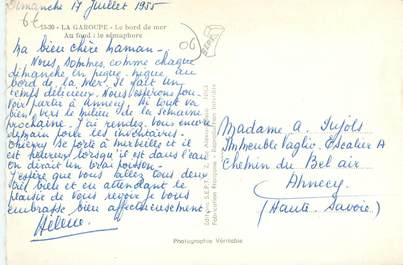 Dimanche 17 Juillet 1955
6€
15-30 - LA GAROUPE - Le bord de mer
Au fond : le sémaphore
06
Ma bien chère maman -
Nous sommes, comme chaque
dimanche, en pique-nique, au
bord de la mer. Il fait un
temps délicieux. Nous espérons pou-
voir partir à Annecy, si tout va
bien vers le milieu de la semaine
prochaine. J'ai rendez vous encore
demain pour les inventaires.
Thierry se porte à merveille et il
est heureux lorsqu'il est dans l'eau
on dirait un vrai poisson -
J'espère que vous allez tous deux
très bien et en attendant le
plaisir de vous revoir je vous
embrasse bien affectueusement
Hélène
Editions S.E.P.T.
Fabrication Française - Reproduction Interdite
Madame A. Pujols
Immeuble Vaglio. Escalier A
Chemin du Bel air
Annecy
(Haute Savoie)
Photographie Véritable